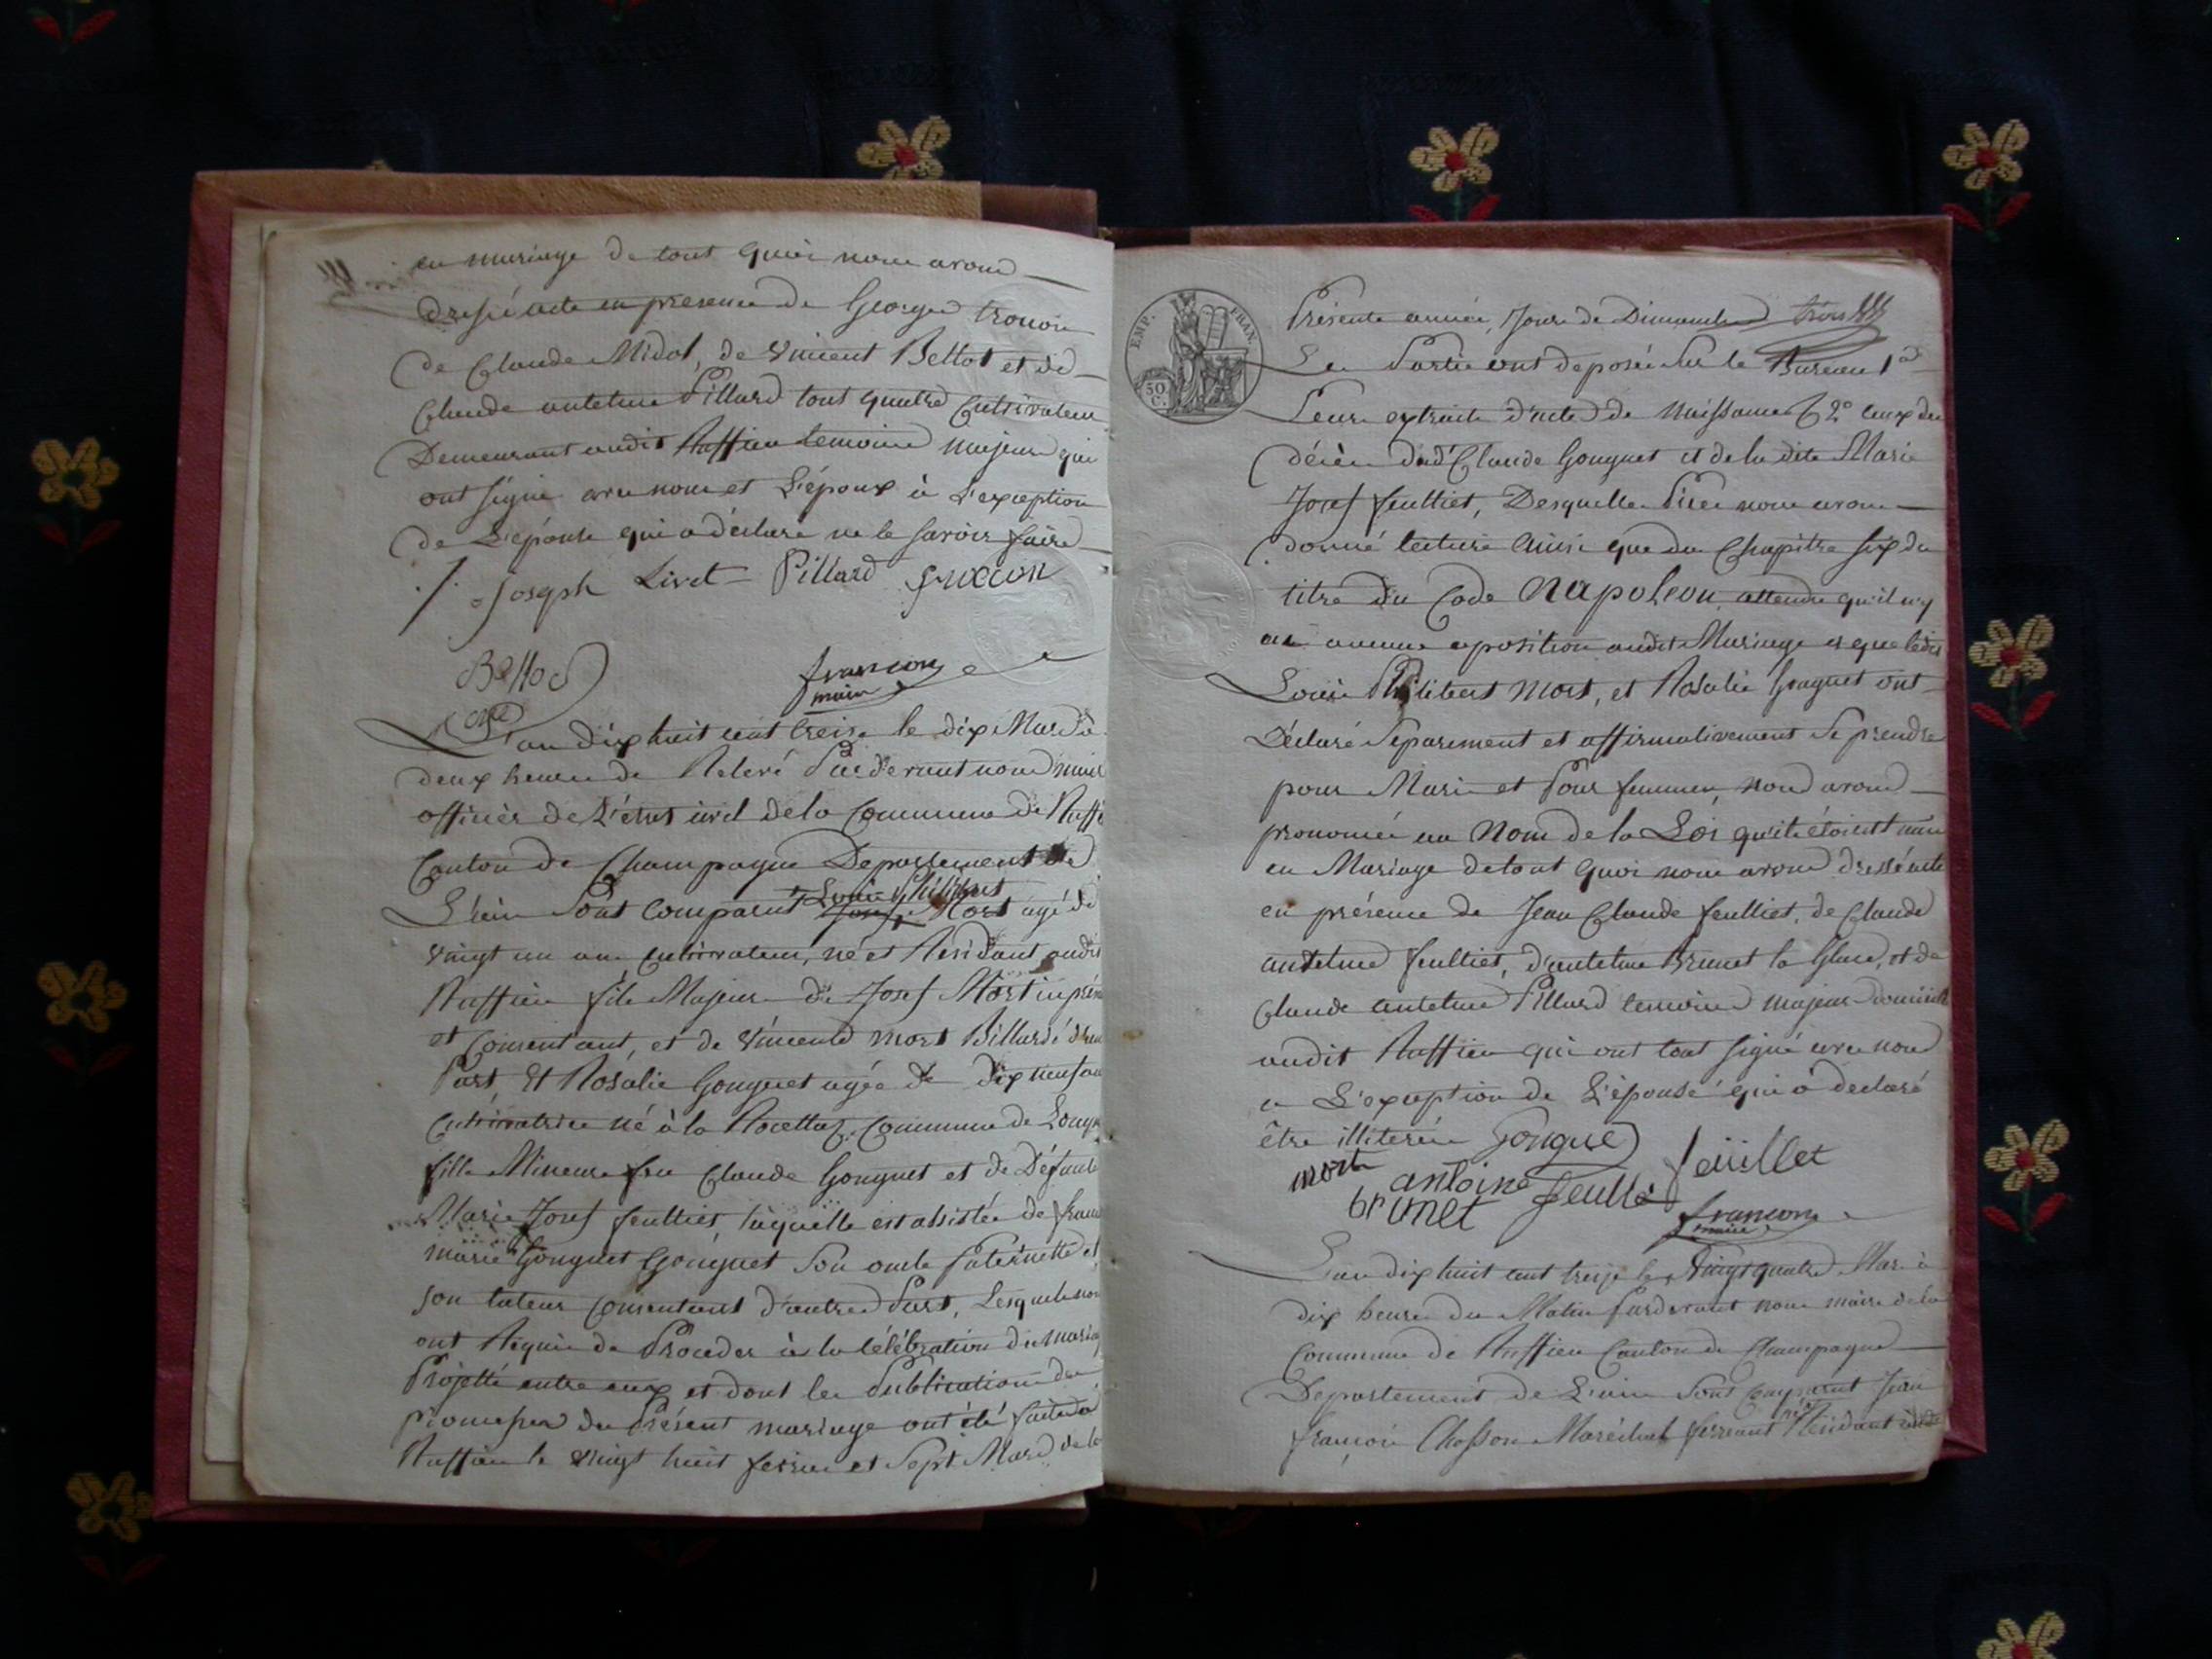 en mariage de tout quoi nous avons
dressé acte en presence de George trocon
de Claude Midol, de Vincent Bellod et de
Claude antelme Pillard tout quatre Cultivateur
Demeurant audit Ruffieu temoins majeurs qui
ont signé avec nous et L'époux à L'exception
de L'épouse qui a déclaré ne le savoir faire
Joseph Livet Pillard trocon
Bellod
francon
maire
L'an dix huit cent treize le dix Mars à
deux heures de Relevé Par devant nous maire
officier de L'état civil de la Commune de Ruffi
Canton de Champagne Departement de
Louis philibert
L'ain Sont Comparut Josef Mort agé de
vingt un ans Cultivateur, né et Résidant audit
Ruffieu fils Majeur de Josef Mort ici prés
et Consentant, et de Vincende mort Billard d'une
Part, Et Rosalie Gonguet agée de dix neuf ans
Cultivatrice né à la Rocettaz Commune de Longe
fille Mineure feu Claude Gonguet et de Défunte
Marie Josef feulliet, laquelle est assistée de fran
marie Gonguet Gonguet Son oncle Paternelle et
son tuteur Consentant d'autre Part, Lesquels nous
ont Réquis de Procéder à la célébration du maria
Projetté entre eux et dont les Publications des
promesses du Présent mariage ont été faites à
Ruffieu le vingt huit fevrier et Sept Mars de la
EMP. FRAN.
50 C.
Présente année, Jours de Dimanche
Les Parties ont déposées Sur le Bureau 1°
Leurs extraits d'actes de Naissances 2° ceux des
décès dud' Claude Gonguet et de la dite Marie
Josef feulliet, Desquelles Pièces nous avons
donné lecture ainsi que du Chapitre six du
titre du Code Napoleon, attendu qu'il n'y
a aucune oposition audit Mariage et que ledit
Louis Philibert Mort, et Rosalie Gonguet ont
Déclaré Séparement et affirmativement Se prendre
pour Mari et Pour femmes, Nous avons
prononcés au Nom de la Loi qu'ils étoient unis
en Mariage de tout quoi nous avons dressé acte
en présence de Jean Claude feulliet, de Claude
antelme feulliet, d'antelme Brunet la Glace, et de
Claude antelme Pillard temoins majeurs domicilié
audit Ruffieu qui ont tout signé avec nous
a L'exception de L'épouse qui a declaré
être illiterée Gonguet
mort antoine feuillet
brunet feulliet
francon
maire
L'an dix huit cent treize le Vingt quatre Mars à
dix heures du Matin Pardevant nous maire de la
Commune de Ruffieu Canton de Champagne
Departement de L'ain Sont Comparut Jean
né et
françois Chosson Maréchal ferrant Résidant audit